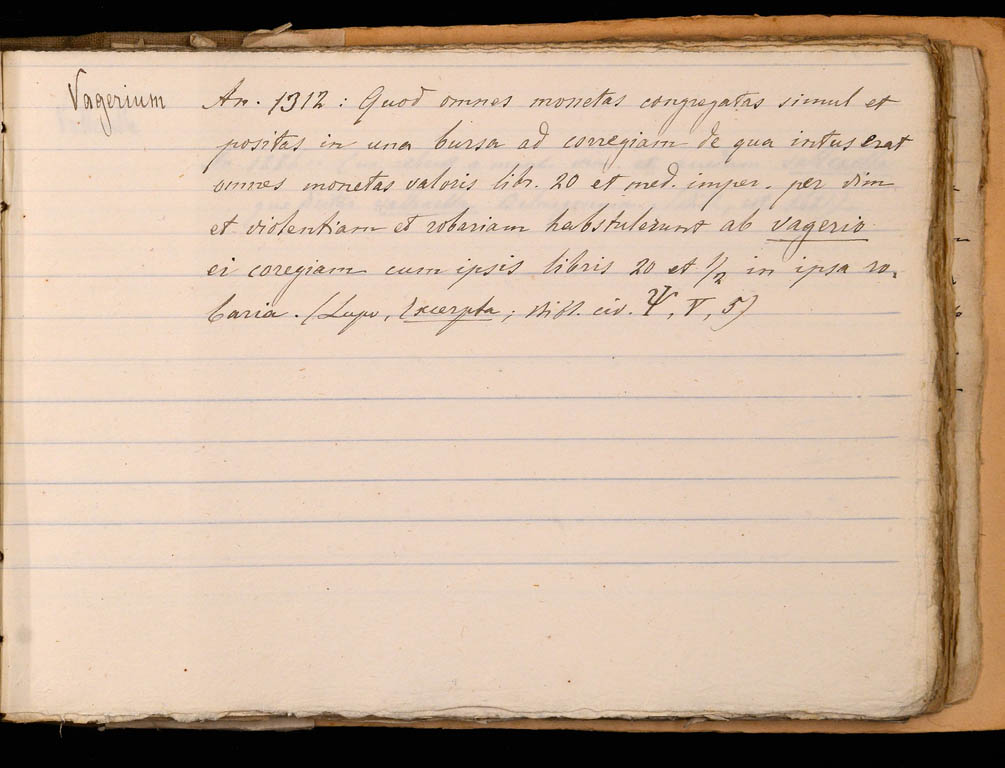 Vagerium
An. 1312 : Quod omnes monetas congregatas simul et
positas in una bursa ad corregiam de qua intus erat
omnes monetas valoris libr. 20 et med. imper. per vim
et violentiam et robariam habstulerunt ab vagerio
ei coregiam cum ipsis libris 20 et 1/2 in ipsa ro-
baria. (Lupo, Excerpta, bibl. civ. Ψ, V, 5)